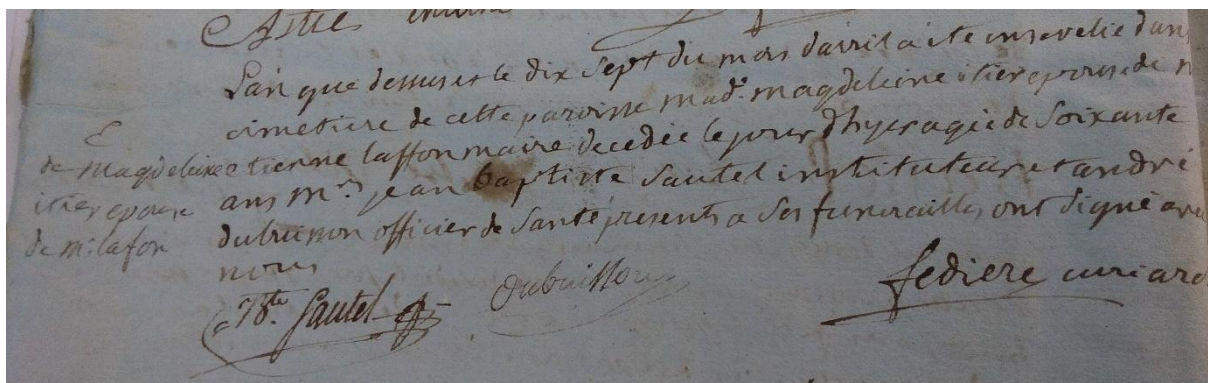 L'an que dessus et le dix Sept du mois davril a ete ensevelie dans
cimetiere de cette paroisse mad.e magdeleine itier epouse de m
etienne laffon maire decedée le jour d'hyer agée de Soixante
ans m.rs jean baptiste Sautel instituteur et andré
dubuisson officier de Santé presents a Ses funerailles ont Signé avec
nous
de magdeleine
itier epouse
de m.r lafon
JB.te Sautel
Dubuisson
fediere curé